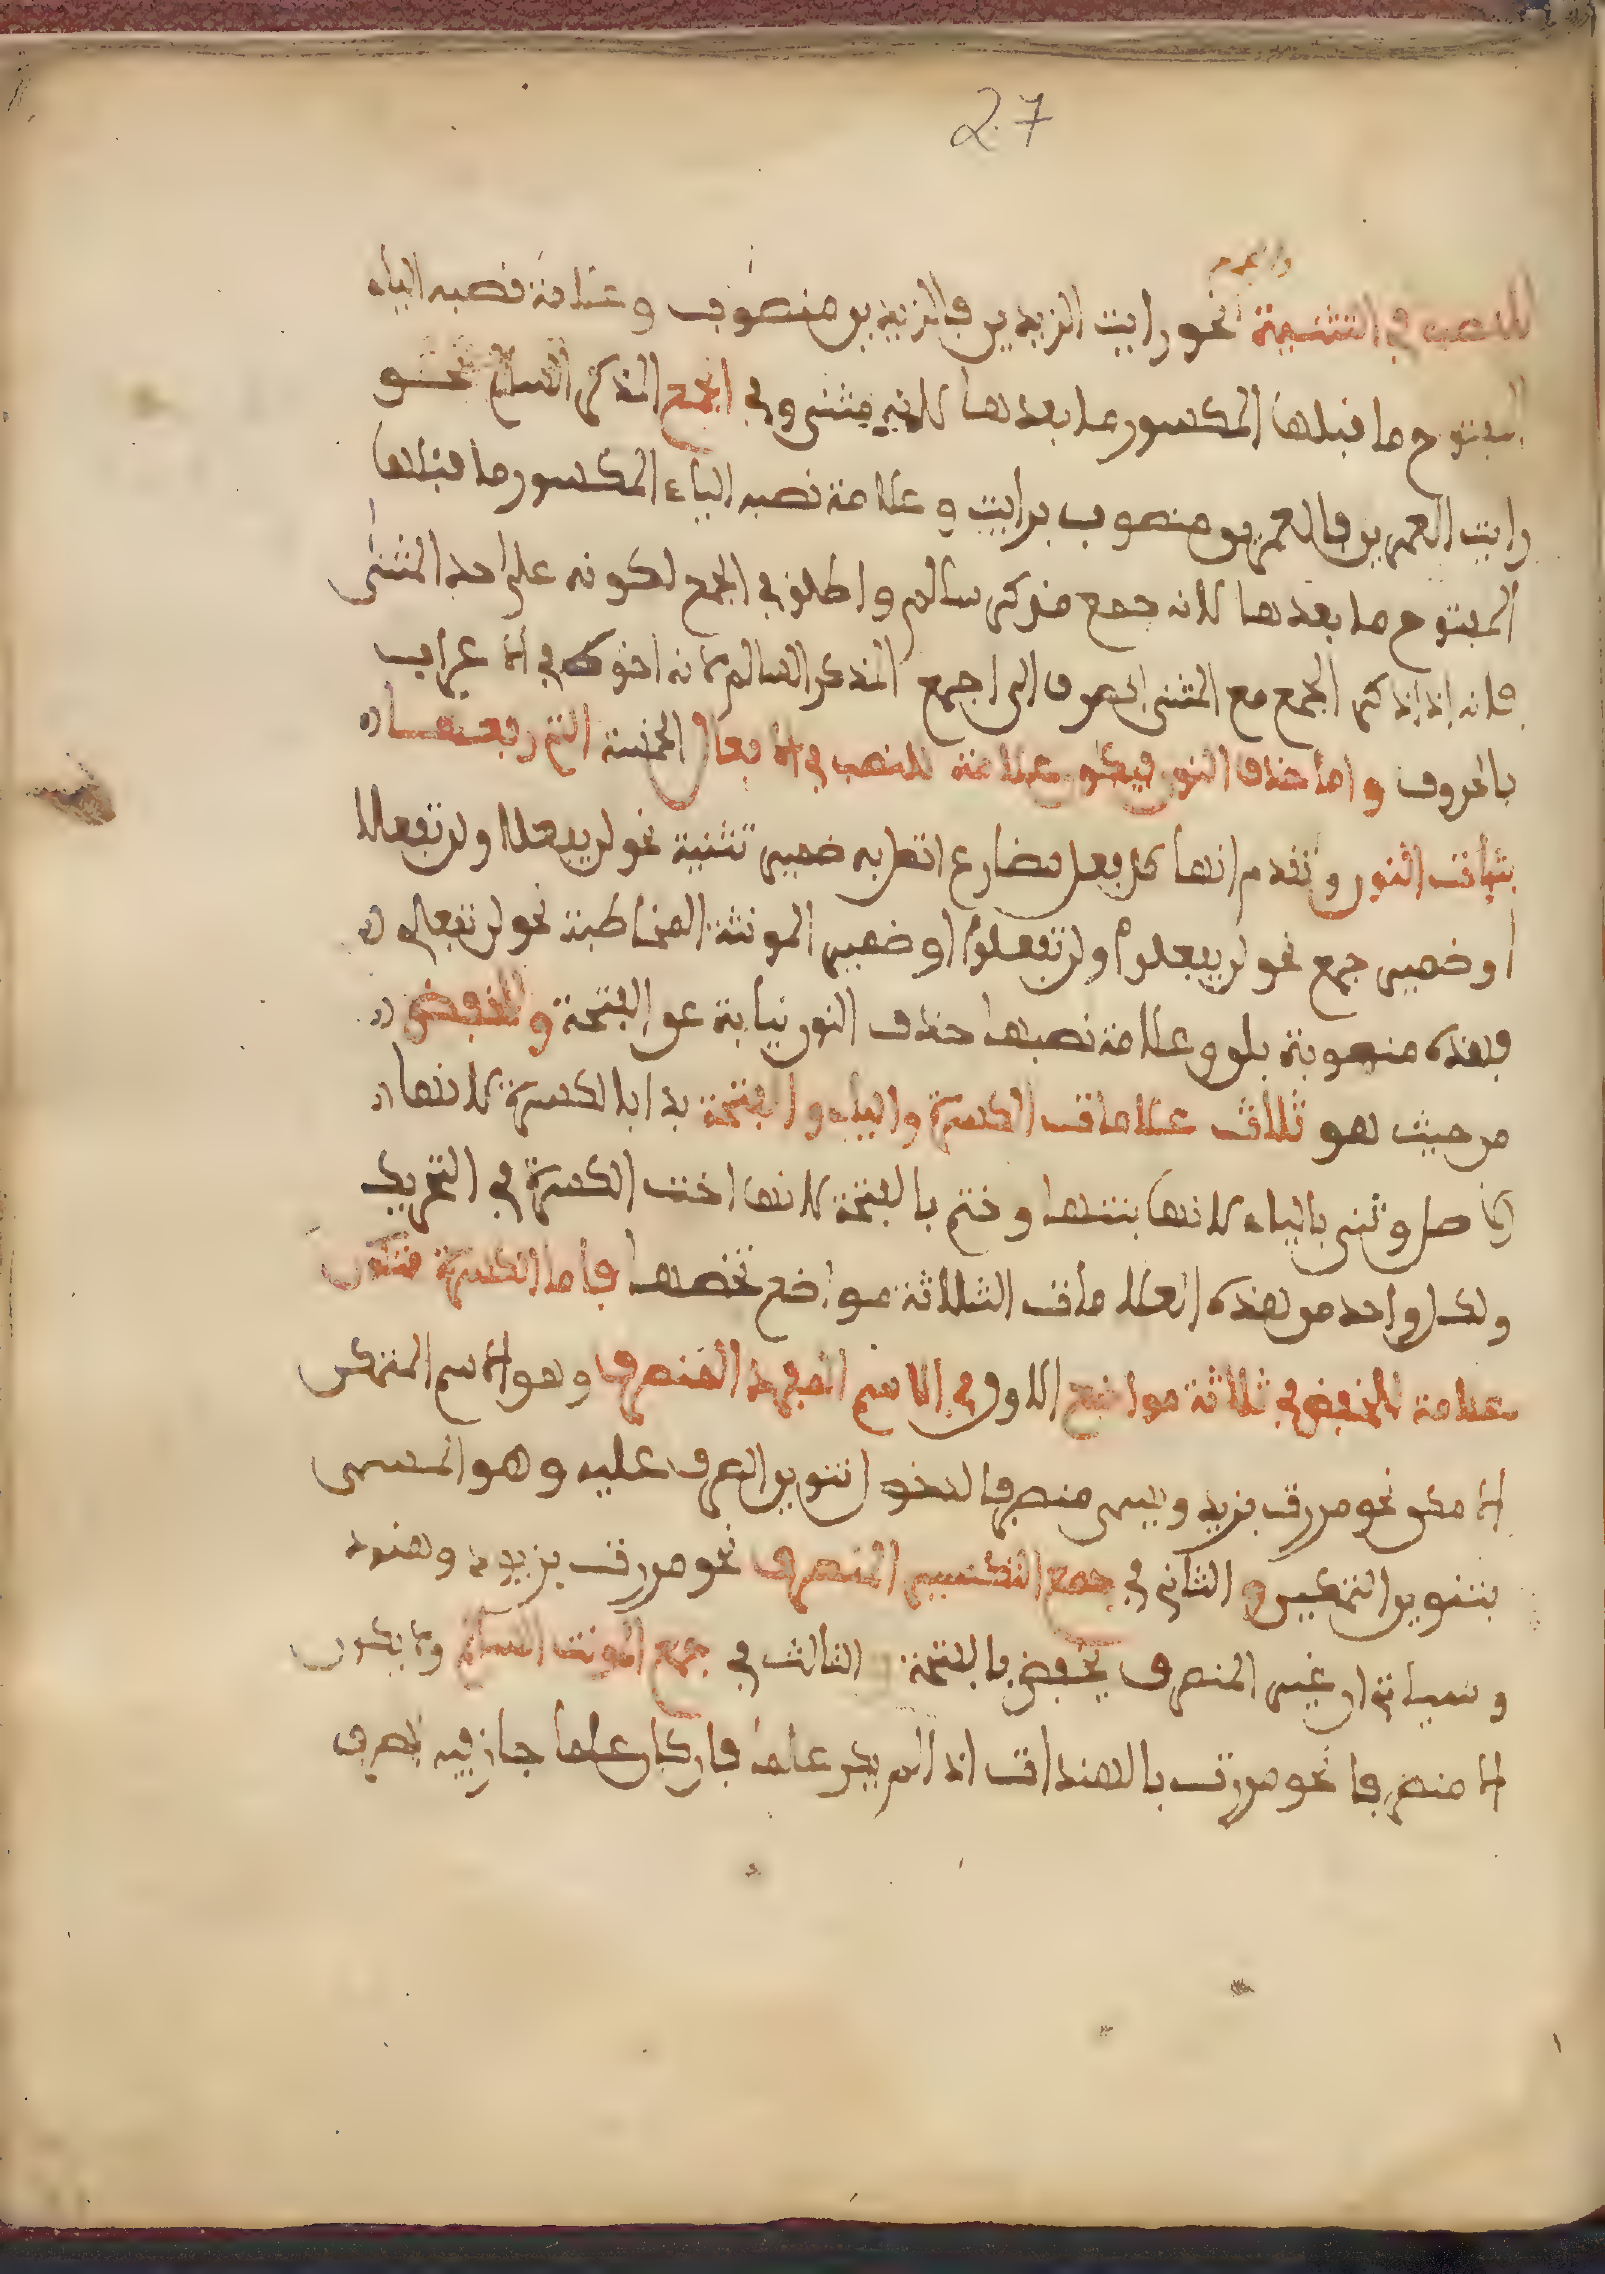 27
والجمع
للنصب في التثنية نحو رايت الزيدين فالزيدين منصوب وعلامة نصبه الياء
المفتوح ما قبلها المكسور ما بعدها لانه مثنى وفي الجمع المذكر السالم نحو
رايت العمرين فالعمرين منصوب برايت وعلامة نصبه الياء المكسور ما قبلها
المفتوح ما بعدها لانه جمع مذكر سالم واطلق في الجمع لكونه على حد المثنى
فانه اذا ذكر الجمع مع المثنى انصرف الى جمع المذكر السالم لانه اخوه في الاعراب
بالحروف واما حذف النون فيكون علامة للنصب في الافعال الخمسة التي رفعها
بثبات النون وتقدم انها كل فعل مضارع اتصل به ضمير تثنية نحو لن يفعلا ولن تفعلا
او ضمير جمع نحو لن يفعلوا ولن تفعلوا او ضمير المونثة المخاطبة نحو لن تفعلي
فهذه منصوبة بلن وعلامة نصبها حذف النون نيابة عن الفتحة وللخفض
من حيث هو ثلاث علامات الكسرة والياء والفتحة بدا بالكسرة لانها
الاصل وثنى بالياء لانها بنتها وختم بالفتحة لانها اخت الكسرة في التحريك
ولكل واحد من هذه العلامات الثلاثة مواضع تخصها فاما الكسرة فتكون
علامة للخفض في ثلاثة مواضع الاول في الاسم المفرد المنصرف وهو الاسم المتمكن
الامكن نحو مررت بزيد ويسمى منصرفا لدخول تنوين الصرف عليه وهو المسمى
بتنوين التمكين والثاني في جمع التكسير المنصرف نحو مررت بزيود وهنود
وسياتي ان غير المنصرف يخفض بالفتحة والثالث في جمع المونث السالم ولا يكون
الا منصرفا نحو مررت بالهندات اذا لم يكن علما فان كان علما جاز فيه الصرف